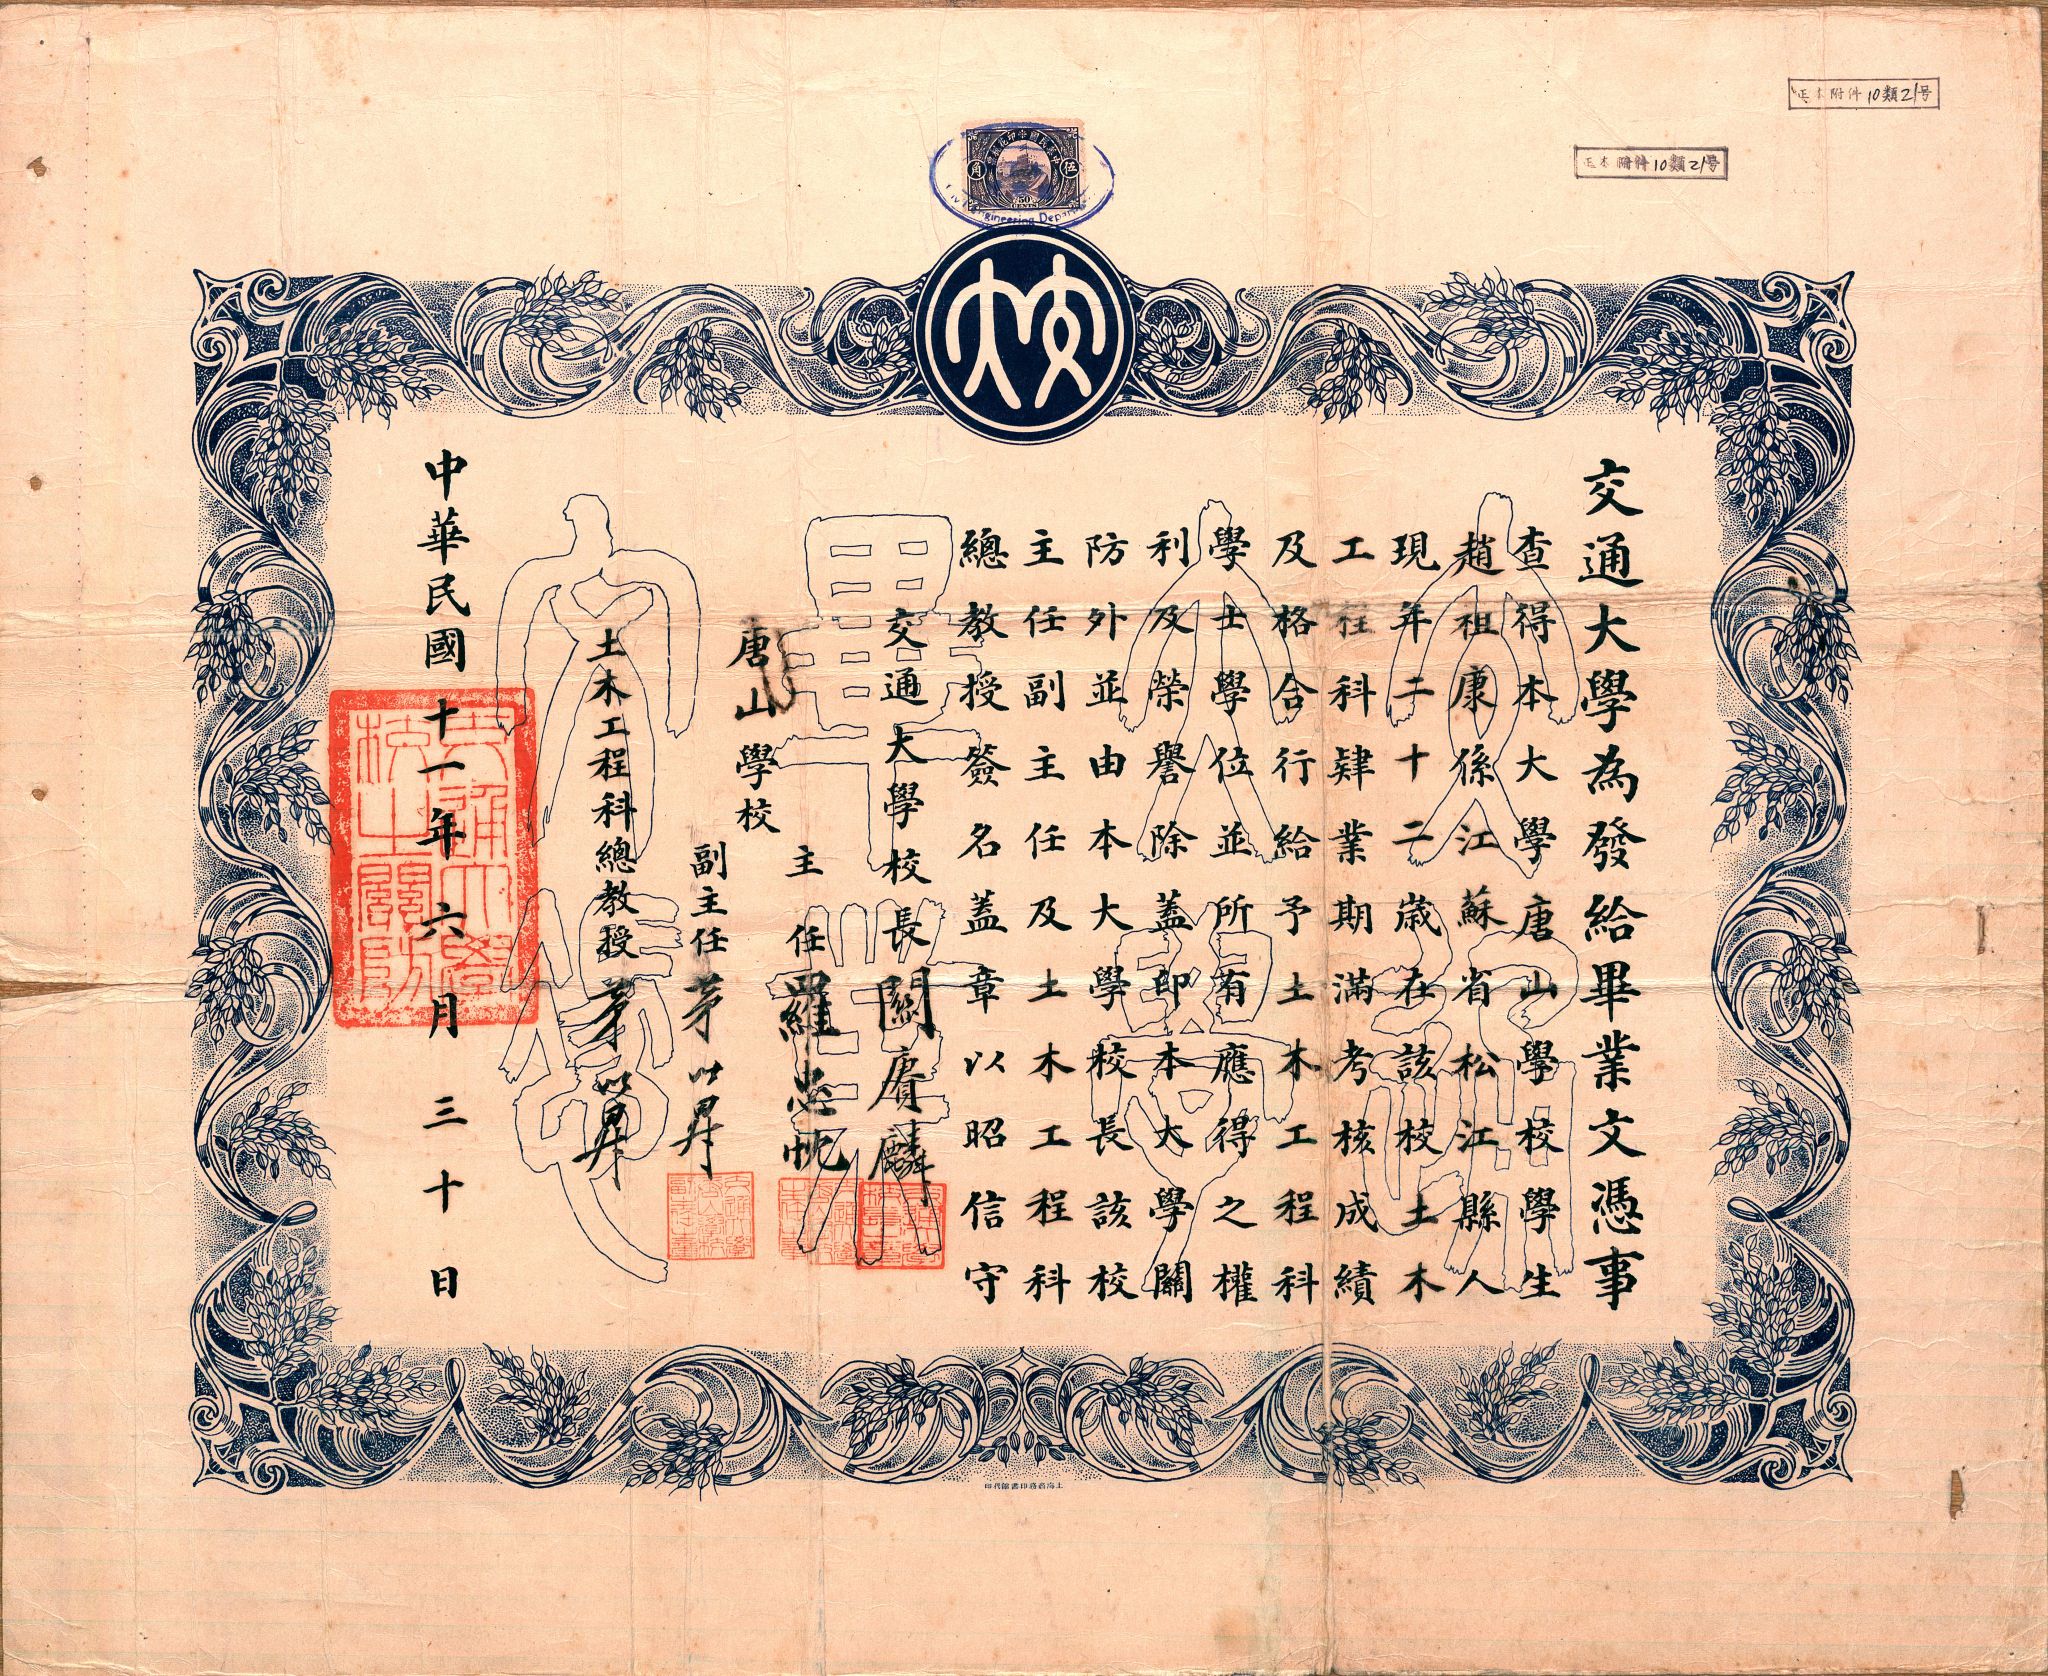 正本附件10類21号
正本附件10類21号
中華民國印花稅票
伍
角
50
CENTS
Engineering Depart
校
交通大學為發給畢業文憑事
查得本大學唐山學校學生
趙祖康係江蘇省松江縣人
現年二十二歲在該校土木
工程科肄業期滿考核成績
及格合行給予土木工程科
學士學位並所有應得之權
利及榮譽除蓋印本大學關
防外並由本大學校長該校
主任副主任及土木工程科
總教授簽名蓋章以昭信守
交通大學校長關賡麟
唐山學校
主任羅忠忱
副主任茅以昇
土木工程科總教授茅以昇
中華民國十一年六月三十日
交通大學
校之關防
上海商務印書館代印